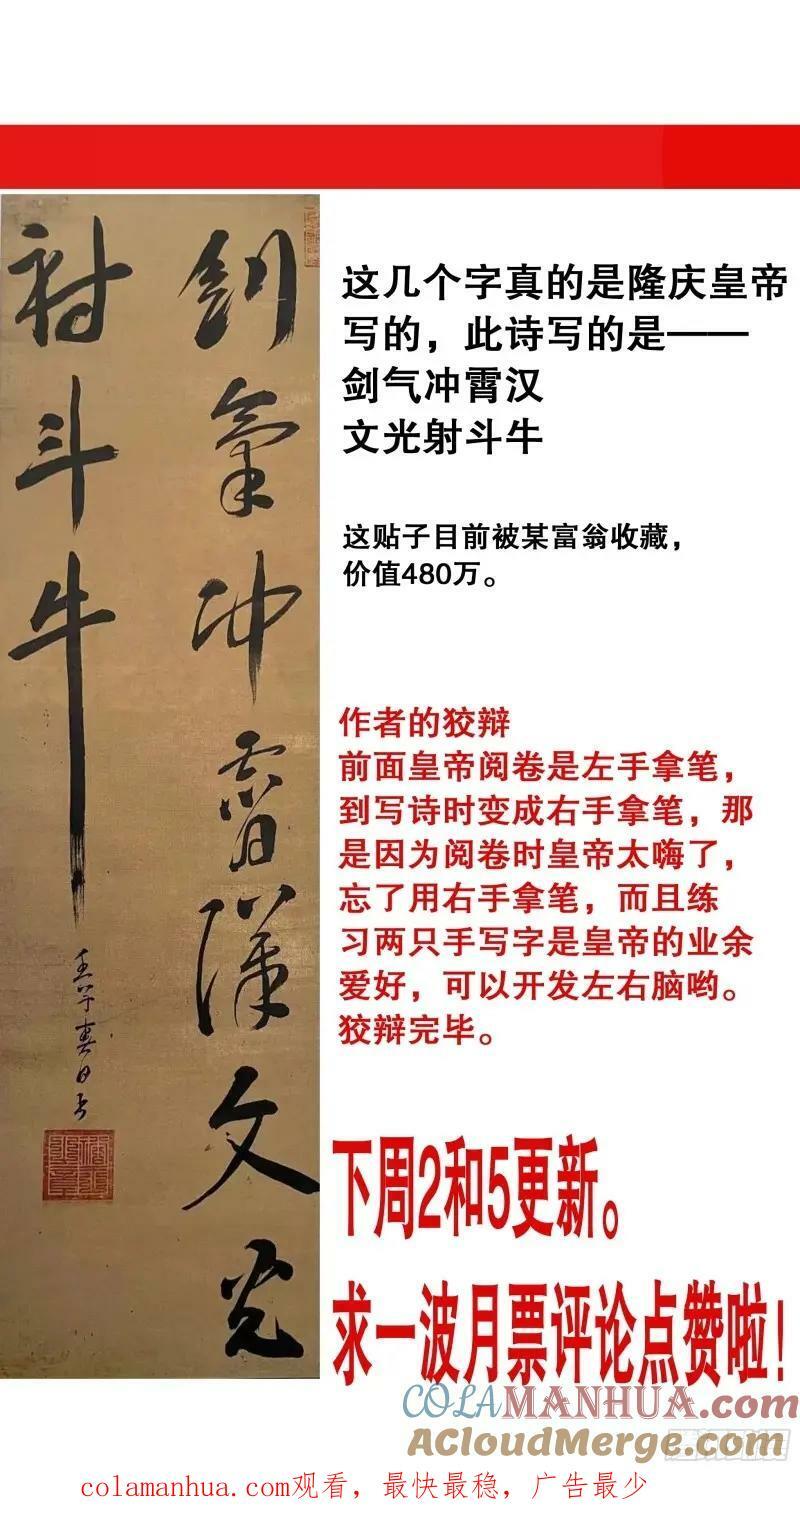 剑氣冲霄漢文光
射斗牛
这几个字真的是隆庆皇帝
写的，此诗写的是——
剑气冲霄汉
文光射斗牛
这贴子目前被某富翁收藏，
价值480万。
作者的狡辩
前面皇帝阅卷是左手拿笔，
到写诗时变成右手拿笔，那
是因为阅卷时皇帝太嗨了，
忘了用右手拿笔，而且练
习两只手写字是皇帝的业余
爱好，可以开发左右脑哟。
狡辩完毕。
下周2和5更新。
求一波月票评论点赞啦！
COLAMANHUA.com
ACloudMerge.com
colamanhua.com观看，最快最稳，广告最少